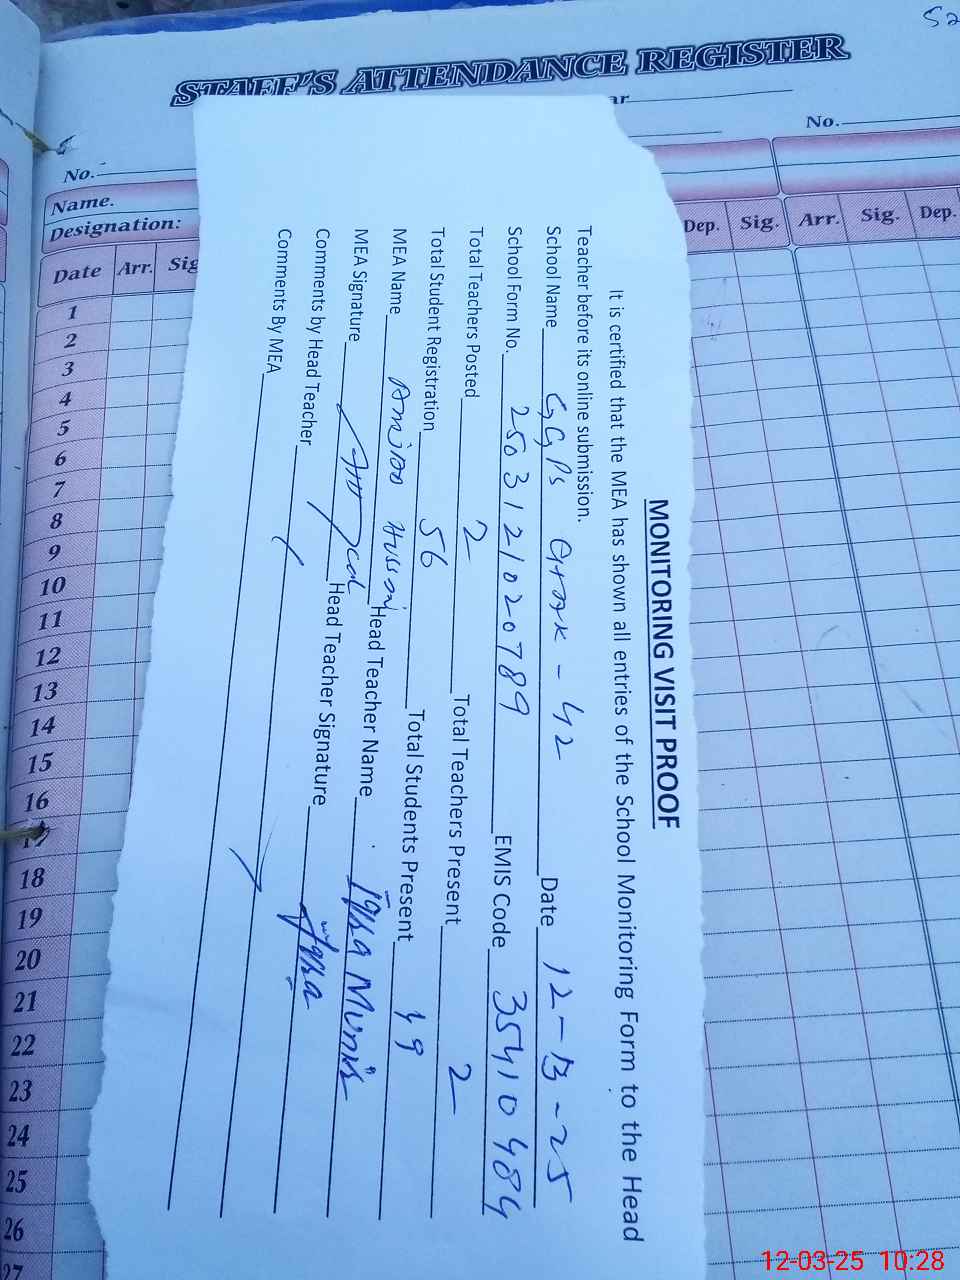 STAFF'S ATTENDANCE REGISTER
No.
No.
Name.
Designation:
Date Arr. Sig
Dep. Sig. Arr. Sig. Dep.
1
2
3
4
5
6
7
8
9
10
11
12
13
14
15
16
17
18
19
20
21
22
23
24
25
26
27
MONITORING VISIT PROOF
It is certified that the MEA has shown all entries of the School Monitoring Form to the Head
Teacher before its online submission.
School Name GGPS Attock - 42 Date 12-B-25
School Form No. 2503121020789 EMIS Code 35410484
Total Teachers Posted 2 Total Teachers Present 2
Total Student Registration 56 Total Students Present 49
MEA Name Hussain Head Teacher Name Iqra Munir
MEA Signature Head Teacher Signature Iqra
Comments by Head Teacher
Comments By MEA
12-03-25 10:28